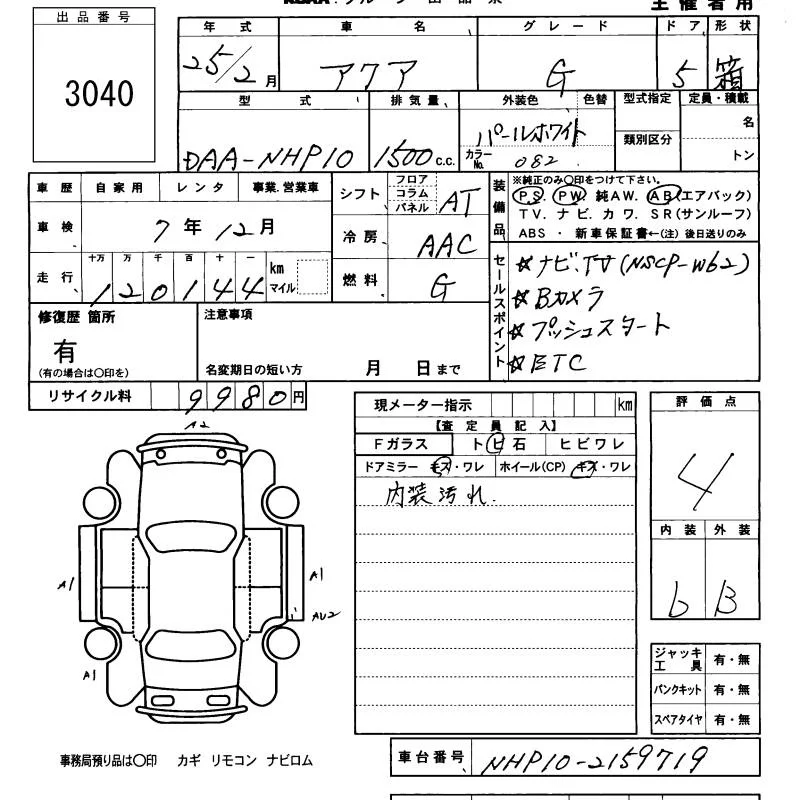 出品番号
3040
主催者用
年式 車名 グレード ドア 形状
25/2月 アクア G 5 箱
型式 排気量 外装色 色替 型式指定 定員・積載
DAA-NHP10 1500c.c. パールホワイト 類別区分 名
カラーNo. 082 トン
車歴 自家用 レンタ 事業.営業車
車検 7年12月
走行 十万 万 千 百 十 一 km マイル
120144
シフト フロア コラム パネル AT
冷房 AAC
燃料 G
装備品
※純正のみ〇印をつけて下さい。
P.S. PW. 純AW. AB(エアバック)
TV. ナビ. カワ. SR(サンルーフ)
ABS ・ 新車保証書←(注) 後日送りのみ
セールスポイント
☆ナビ.TV(NSCP-W62)
☆Bカメラ
☆プッシュスタート
☆ETC
修復歴 箇所
有
(有の場合は〇印を)
注意事項
名変期日の短い方 月 日まで
リサイクル料 9980円
現メーター指示 km
【査定員記入】
Fガラス トビ石 ヒビワレ
ドアミラー キズ・ワレ ホイール(CP) キズ・ワレ
内装汚れ.
評価点
4
内装 外装
b B
ジャッキ工具 有・無
パンクキット 有・無
スペアタイヤ 有・無
A2
A1
A1
AU2
A1
事務局預り品は〇印 カギ リモコン ナビロム
車台番号 NHP10-2159719